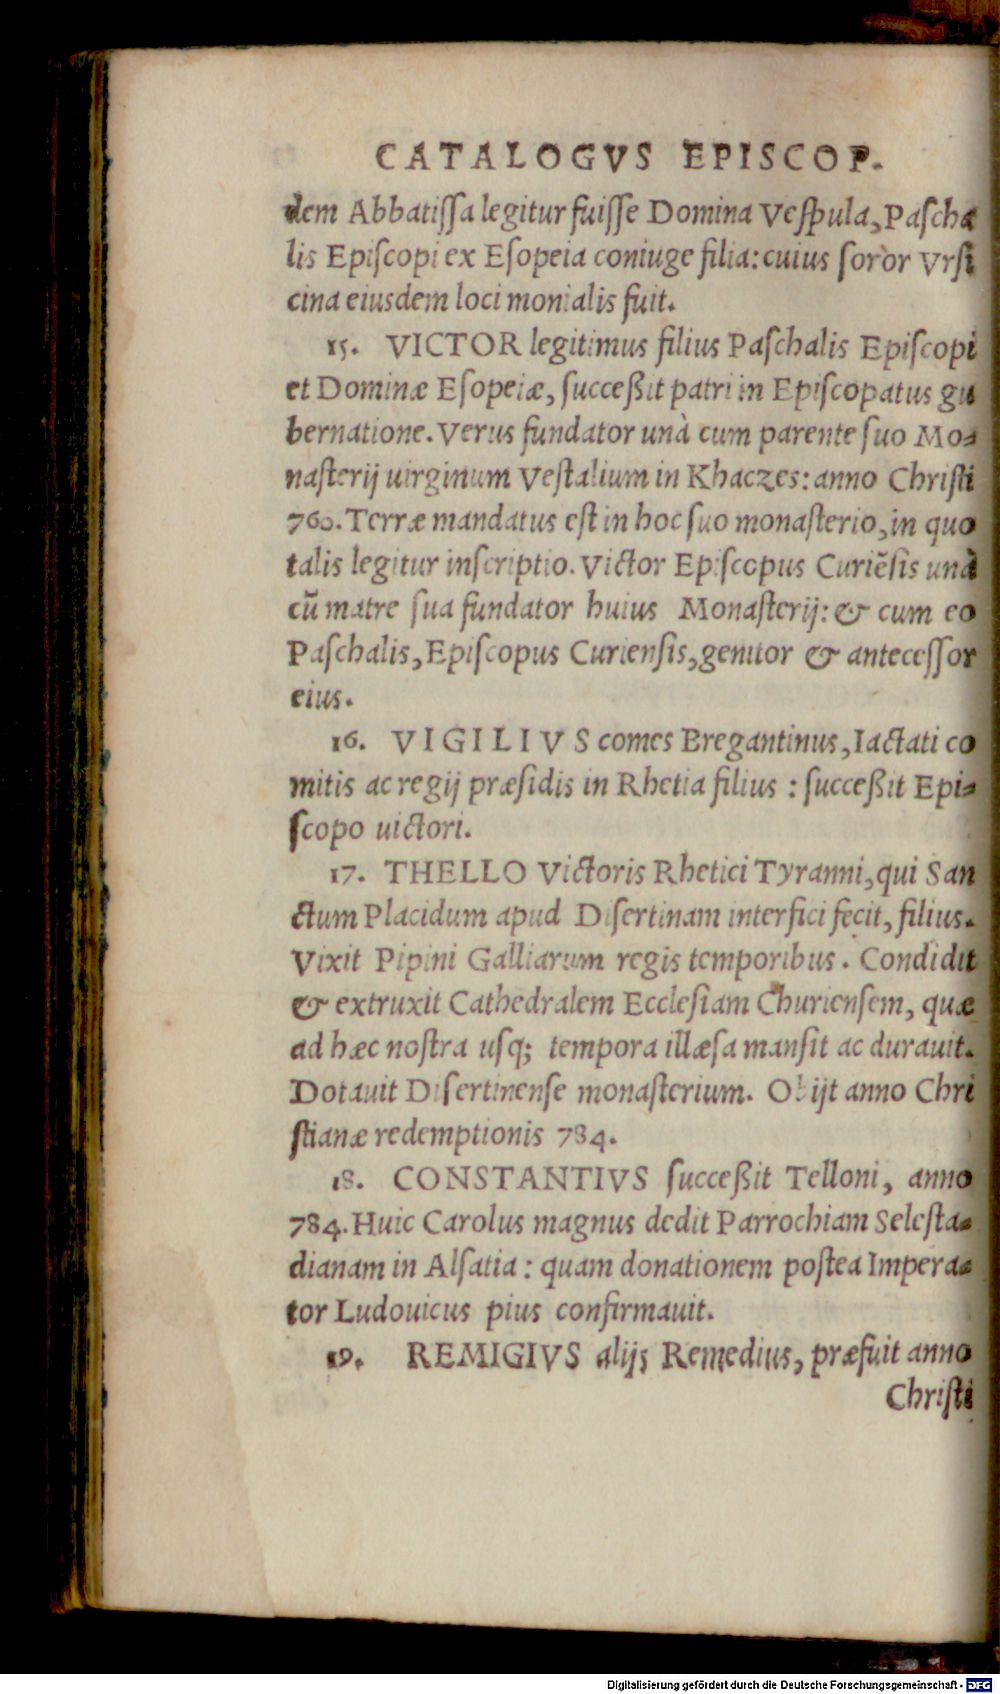 CATALOGVS EPISCOP.
dem Abbatiſſa legitur fuiſſe Domina Veſpula, Paſcha
lis Epiſcopi ex Eſopeia coniuge filia: cuius ſoror Vrſi
cina eiusdem loci monialis fuit.
15. VICTOR legitimus filius Paſchalis Epiſcopi
et Dominæ Eſopeiæ, ſucceßit patri in Epiſcopatus gu
bernatione. Verus fundator unà cum parente ſuo Mo⸗
naſterij uirginum Veſtalium in Khaczes: anno Chriſti
760. Terræ mandatus eſt in hoc ſuo monaſterio, in quo
talis legitur inſcriptio. Victor Epiſcopus Curiẽſis unà
cũ matre ſua fundator huius Monaſterij: & cum eo
Paſchalis, Epiſcopus Curienſis, genitor & anteceſſor
eius.
16. VIGILIVS comes Bregantinus, Iactati co
mitis ac regij præſidis in Rhetia filius : ſucceßit Epi⸗
ſcopo uictori.
17. THELLO Victoris Rhetici Tyranni, qui San
ctum Placidum apud Diſertinam interfici fecit, filius.
Vixit Pipini Galliarum regis temporibus. Condidit
& extruxit Cathedralem Eccleſiam Churienſem, quæ
ad hæc noſtra uſq; tempora illæſa manſit ac durauit.
Dotauit Diſertinenſe monaſterium. Obijt anno Chri
ſtianæ redemptionis 784.
18. CONSTANTIVS ſucceßit Telloni, anno
784. Huic Carolus magnus dedit Parrochiam Seleſta⸗
dianam in Alſatia : quam donationem poſtea Impera⸗
tor Ludouicus pius confirmauit.
19. REMIGIVS alijs Remedius, præfuit anno
Chriſti
Digitalisierung gefördert durch die Deutsche Forschungsgemeinschaft - DFG